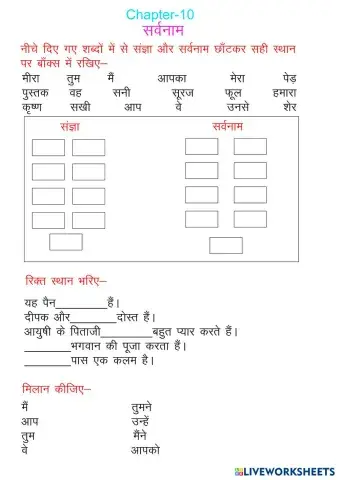 Chapter-10
सर्वनाम
नीचे दिए गए शब्दों में से संज्ञा और सर्वनाम छाँटकर सही स्थान
पर बॉक्स में रखिए–
मीरा तुम मैं आपका मेरा पेड़
पुस्तक वह सनी सूरज फूल हमारा
कृष्ण सखी आप वे उनसे शेर
संज्ञा सर्वनाम
रिक्त स्थान भरिए–
यह पैन________हैं।
दीपक और________दोस्त हैं।
आयुषी के पिताजी________बहुत प्यार करते हैं।
________भगवान की पूजा करता हैं।
________पास एक कलम है।
मिलान कीजिए–
मैं तुमने
आप उन्हें
तुम मैंने
वे आपको
LIVEWORKSHEETS